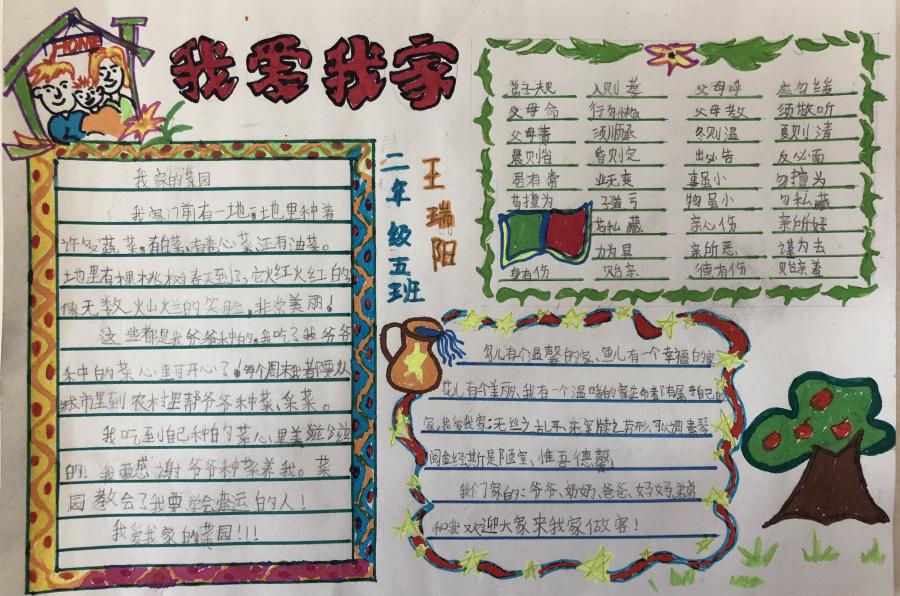 HOME
我爱我家
二年级五班
王瑞阳
我家的菜园
我家门前有一地,土地里种着
许多蔬菜,有白菜,有卷心菜,还有油菜。
土地里有棵桃树,春天到了,它火红火红的
像无数灿烂的笑脸,非常美丽!
这些都是我爷爷种的,我吃了我爷爷
种的菜心里可开心了,每个周末我都要从
城市里到农村里帮爷爷种菜、采菜。
我吃到自己种的菜心里美滋滋
的!我要感谢爷爷种菜养我。菜
园教会了我要学会感云的人!
我爱我家的菜园!!!
弟子规 入则孝 父母呼 应勿缓
父母命 行勿懒 父母教 须敬听
父母责 须顺承 冬则温 夏则清
晨则省 昏则定 出必告 反必面
居有常 业无变 事虽小 勿擅为
苟擅为 子道亏 物虽小 勿私藏
苟私藏 亲心伤 亲所好
力为具 亲所恶 谨为去
身有伤 贻亲 德有伤 贻亲羞
鸟儿有个温馨的家、鱼儿有一个幸福的家
花儿有个美丽、我有一个温暖的家生命都有属于自己的
家。我爱我家:无丝之乱耳,案牍之劳形,可以调素琴
阅金经斯是陋室,惟吾德馨!
我们家的:爷爷、奶奶、爸爸、妈妈、弟弟
和我欢迎大家来我家做客!